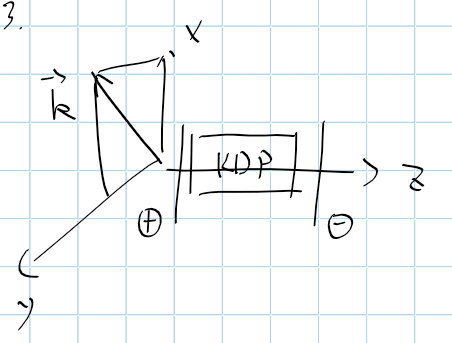 3.
x
k⃗
KDP
z
⊕
⊖
y